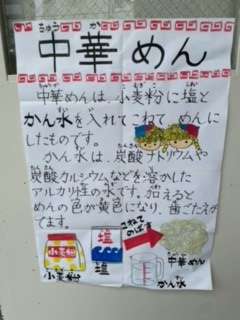 ちゅう か
中華めん
中華めんは、小麦粉に塩と
かん水を入れてこねて めんに
したものです。
かん水は、炭酸ナトリウムや
炭酸カルシウムなどを溶かした
アルカリ性の水です。加えると
めんの色が黄色になり、歯ごたえが
でます。
小麦粉
小麦粉
塩
塩
こねて
のばす
かん水
中華めん